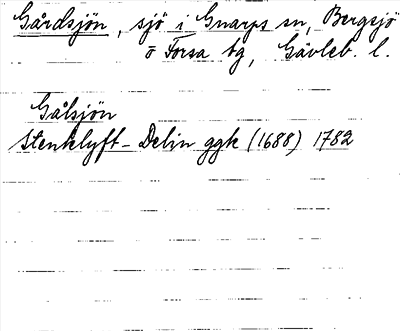 Gårdsjön, sjö i Gnarps sn, Bergsjö
o Forsa tg, Gävleb. l.
Gålsjön
Stenklyft - Delin ggk (1688) 1782